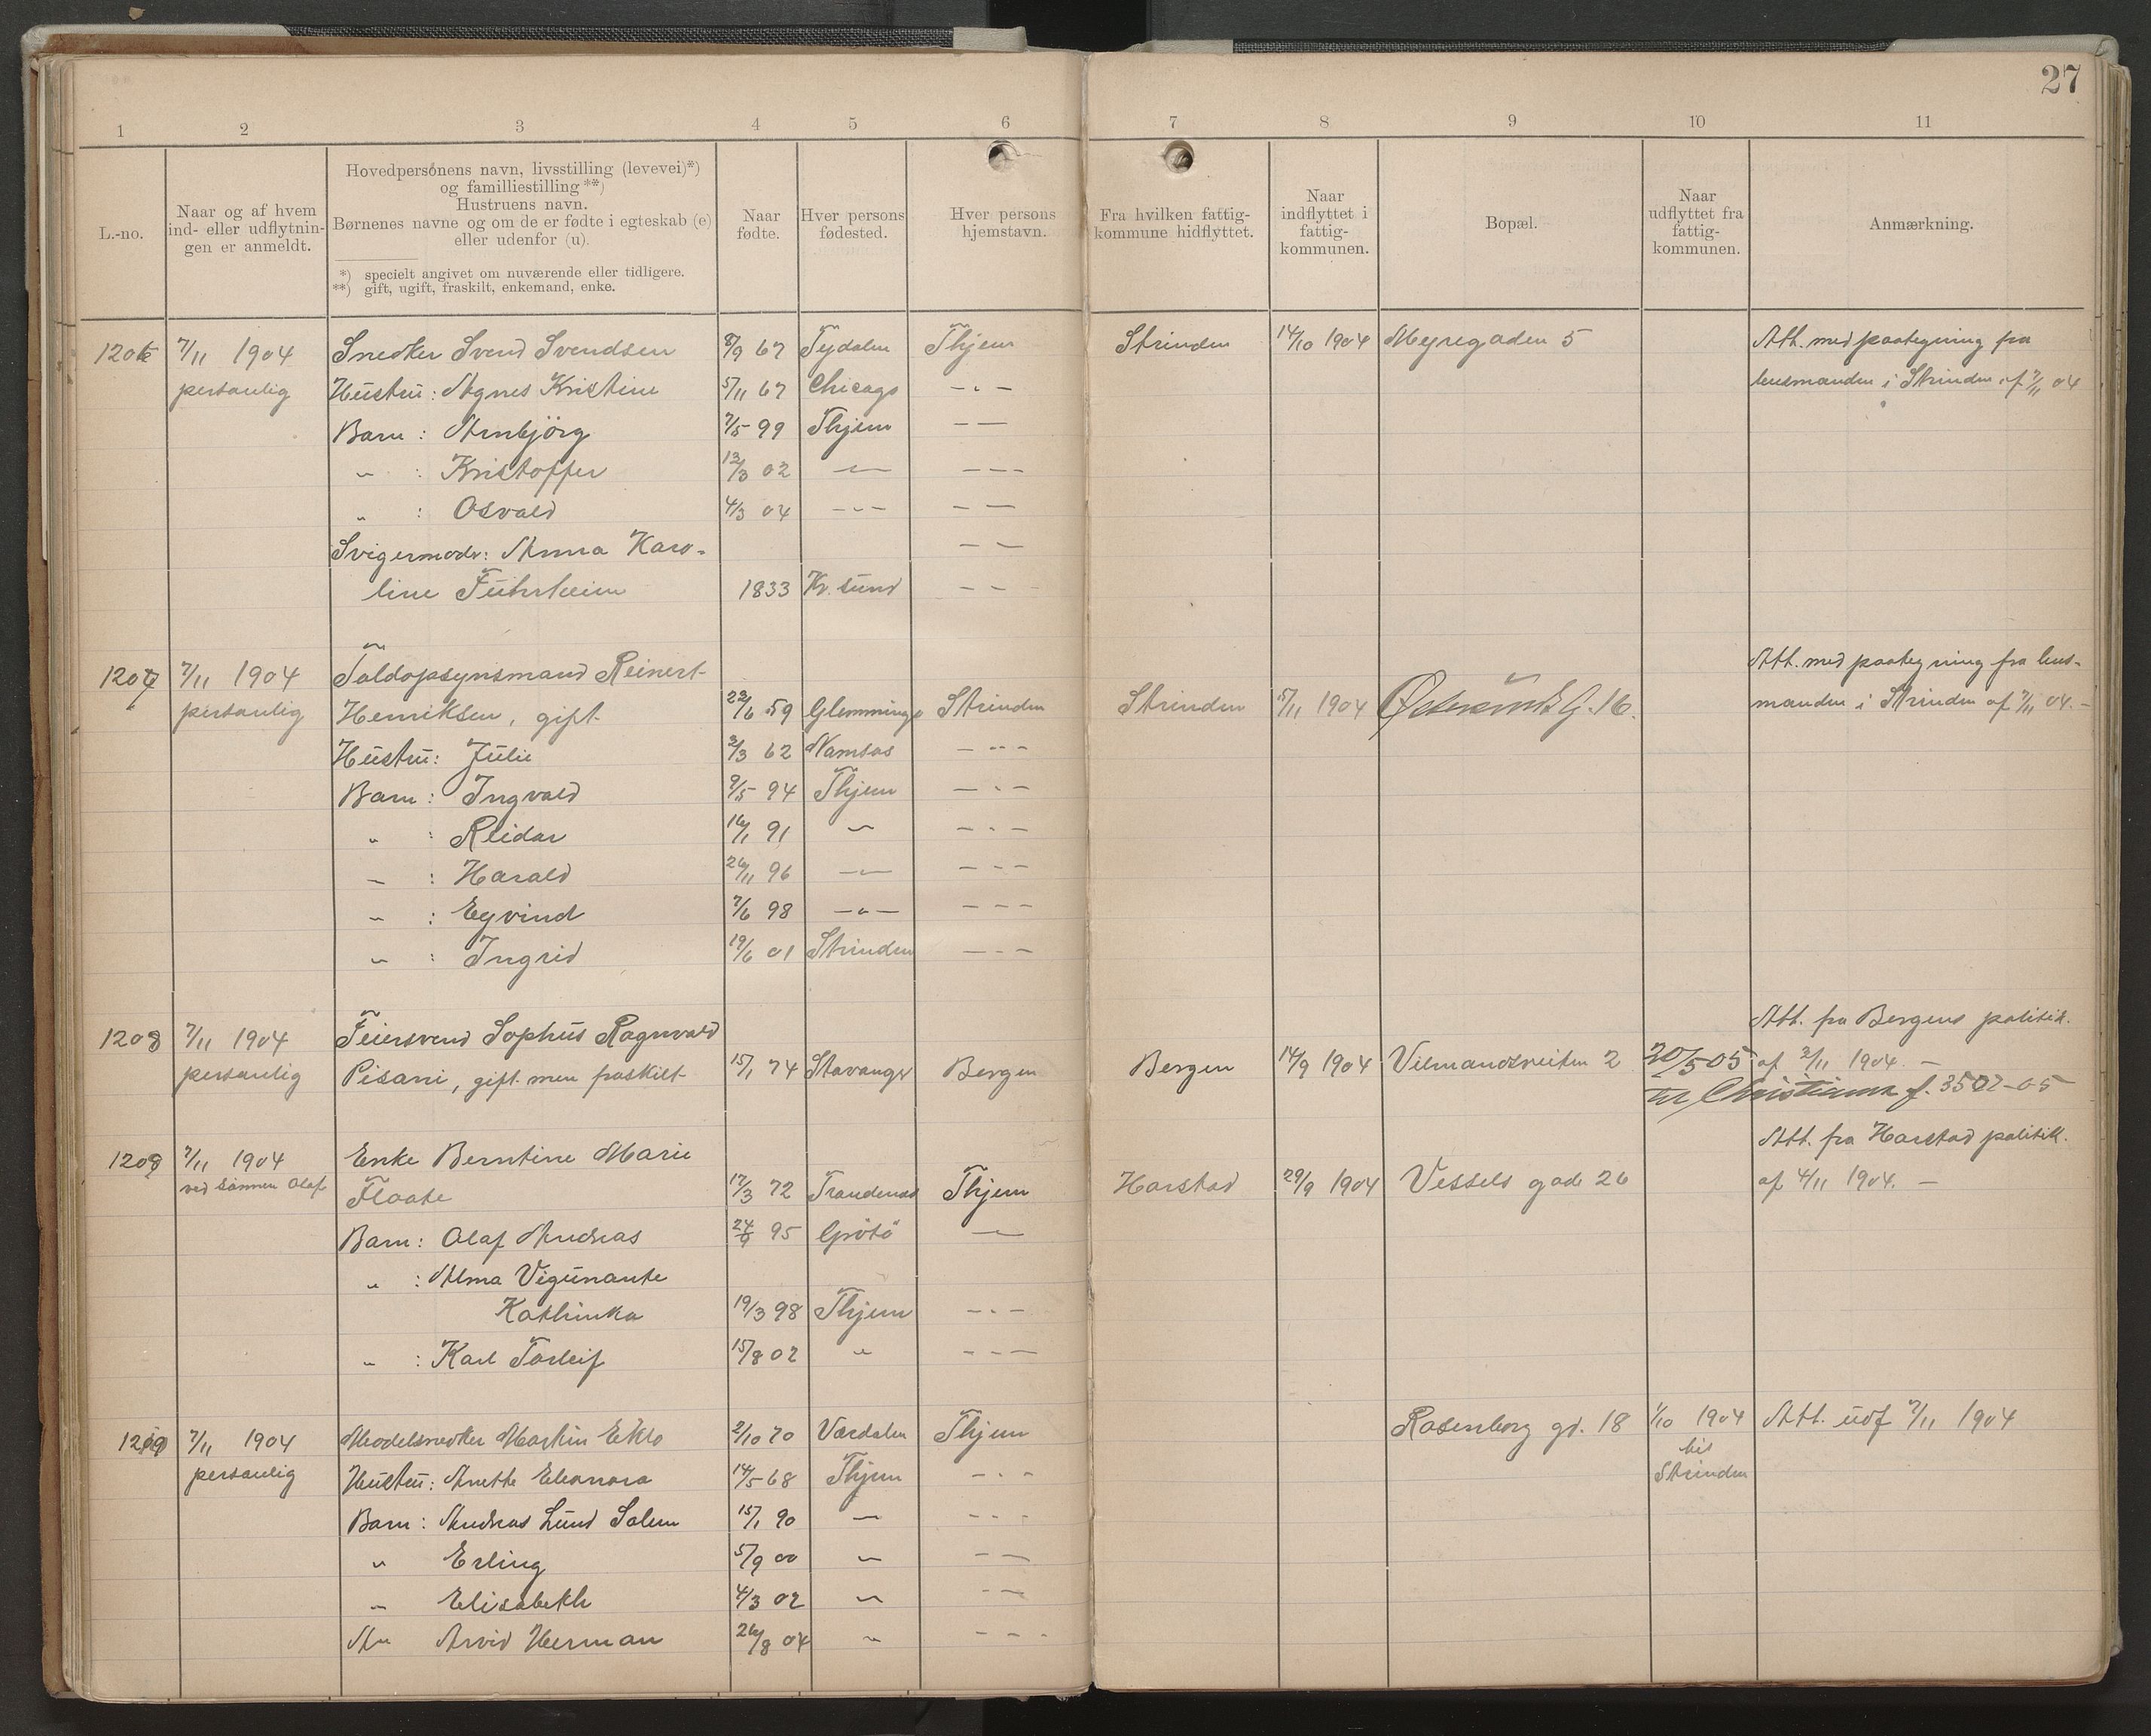 27
1 2 3 4 5 6 7 8 9 10 11
L.-no.
Naar og af hvem ind- eller udflytnin-gen er anmeldt.
Hovedpersonens navn, livsstilling (levevei)*)
og familliestilling **)
Hustruens navn.
Børnenes navne og om de er fødte i egteskab (e)
eller udenfor (u).
*) specielt angivet om nuværende eller tidligere.
**) gift, ugift, fraskilt, enkemand, enke.
Naar fødte.
Hver persons fødested.
Hver persons hjemstavn.
Fra hvilken fattig-kommune hidflyttet.
Naar indflyttet i fattig-kommunen.
Bopæl.
Naar udflyttet fra fattig-kommunen.
Anmærkning.
1206 7/11 1904 Snedker Svend Svendsen 8/9 67 Tydalen Thjem Strinden 14/10 1904 Meyregaden 5 Att. med paategning fra
personlig Hustru: Agnes Kristine 5/11 67 Chicago - " - lensmanden i Strinden af 7/11 04
Barn : Arnbjörg 7/5 99 Thjem - -
" : Kristoffer 13/3 02 - " - - " -
" : Osvald 4/3 04 - " - - -
Svigermoder: Anna Karo- - -
line Führheim 1833 Kr. sund - -
1207 7/11 1904 Toldopsynsmand Reinert Att. med paategning fra lens-
personlig Henriksen, gift 22/6 59 Glemminge Strinden Strinden 5/11 1904 16. manden i Strinden af 7/11 04. -
Hustru: Julie 3/3 62 Namsos - " -
Barn : Ingvald 9/5 94 Thjem - " -
" : Reidar 16/1 91 " - " -
" : Harald 26/11 96 - " - - " -
" : Eyvind 7/6 98 - " - - " -
" : Ingrid 19/6 01 Strinden - " -
1208 7/11 1904 Feiersvend Sophus Ragnvald Att. fra Bergens politik.
personlig Pisani, gift men fraskilt 15/1 74 Stavanger Bergen Bergen 14/9 1904 Vilmandsveiten 2 20/5-05 af 3/11 1904. -
til Christiania f. 3502-05
1209 7/11 1904 Enke Berntine Marie Att. fra Harstad politik.
ved sönnen Olaf Floate 17/3 72 Trondenæs Thjem Harstad 29/9 1904 Vessels gade 26 af 4/11 1904. -
Barn : Olaf Andreas 24/9 95 Grötö -
" : Alma Vigunante
Kathinka 19/3 98 Thjem - " -
" : Karl Torleif 15/8 02 " - " -
1210 7/11 1904 Modelsnedker Martin Eklo 2/10 70 Værdalen Thjem Rosenborg gd. 18 1/10 1904 Att. udf 7/11 1904
personlig Hustru: Anette Eleonora 14/5 68 Thjem - " - til
Strinden
Barn : Andreas Lund Solem 15/1 90 " - " -
" Erling 5/9 00 " - -
" Elisabeth 4/3 02 " - -
Arvid Herman 26/8 04 " - " -